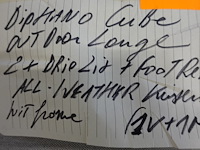 DiphANO Cube
OUTDOOR Longe
2 + DRIP Lid + Foot Re
ALL-WEATHER Kussen
wit frame